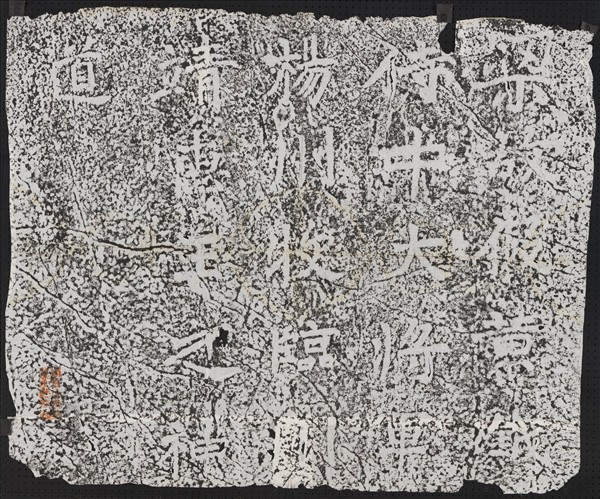 梁故假黃鉞
侍中大將軍
揚州牧臨川
靖惠王之神
道